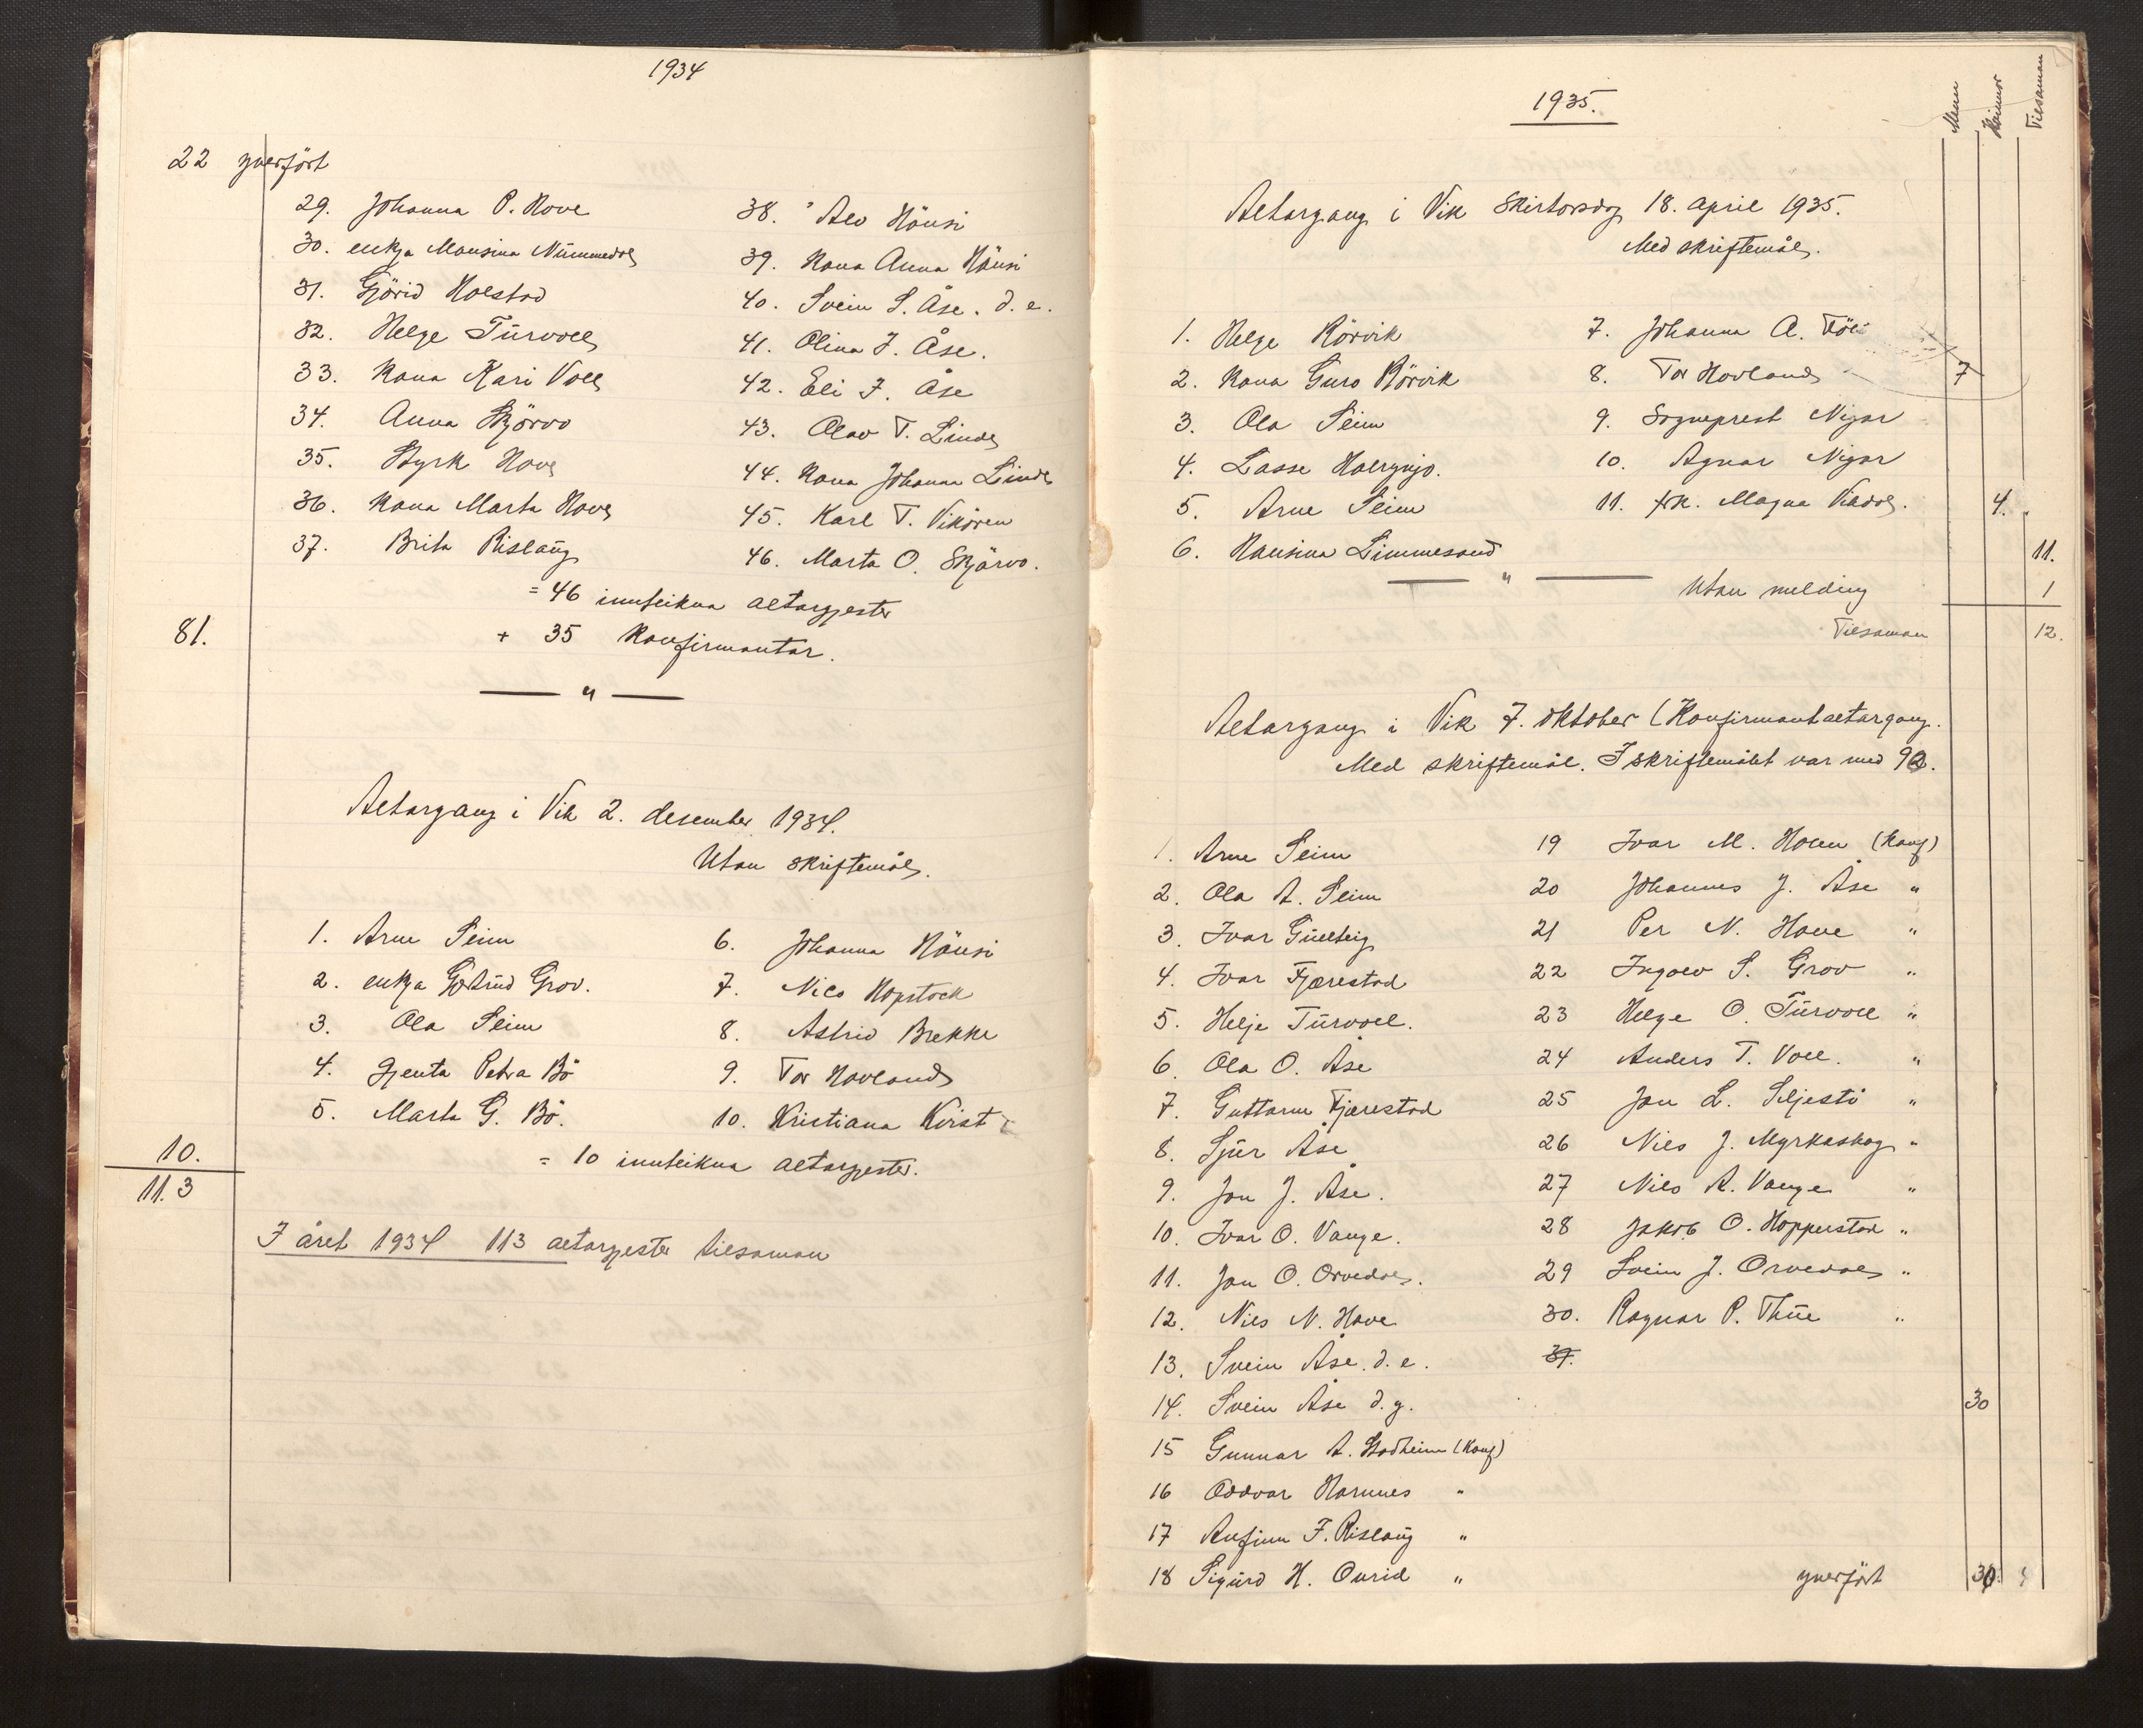 1934
22 yverfört
29. Johanna P. Hove
30. enkja Monsina Nümmedal
31. Gjörid Holstad
32. Helge Türvoll
33. Kona Kari Voll
34. Anna Skjörvo
35. Styrk Hove
36. Kona Marta Hove
37. Brita Rislaüg
38. Alv Hönsi
39. Kona Anna Hönsi
40. Svein S. Åse. d. e.
41. Olina J. Åse.
42. Eli J. Åse
43. Olav T. Linde
44. Kona Johanna Linde
45. Karl T. Vikören
46. Marta O. Skjärvo.
= 46 innteikna altargjester
81. + 35 Konfirmantar.
— " —
Altargang i Vik 2. desember 1934.
Utan skriftemål.
1. Arne Seim
2. enkja Gjertrüd Grov.
3. Ola Seim
4. Gjenta Petra Bö
5. Marta G. Bö.
6. Johanna Hönsi
7. Nils Hopstock
8. Astrid Brekke
9. Tor Hovland
10. Kristiana Kvist
10. = 10 innteikna altargjester.
113
I året 1934 113 altargjester tilsaman
1935.
Menn
Kvinnor
Tilsaman
Altargang i Vik Skirtorsdag 18. april 1935.
Med skriftemål.
1. Helge Rörvik
2. Kona Guro Rörvik
3. Ola Seim
4. Lasse Holrynjo.
5. Arne Seim
6. Hansina Limmesand
7. Johanna A. Böl
8. Tor Hovland 7
9. Sogneprest Nigar
10. Agnar Nigar
11. frk. Magna Vikdal. 4.
11.
— " — Utan melding 1
Tilsaman 12.
Altargang i Vik 7. oktober (Konfirmantaltargang.
Med skriftemål. I skriftemålet var med 92.
1. Arne Seim
2. Ola A. Seim
3. Ivar Güllteig
4. Ivar Fjærestad
5. Helje Türvoll.
6. Ola O. Åse
7. Guttorm Fjærestad
8. Sjür Åse
9. Jon J. Åse.
10. Ivar O. Vange.
11. Jon O. Orvedal.
12. Nils N. Hove
13. Svein Åse. d. e.
14. Svein Åse d. y.
15 Gunnar A. Stadheim (Konf)
16 Oddvar Hamnes "
17 Anfinn F. Rislaüg "
18 Sigurd H. Ovrid "
19 Ivar M. Hoem (Konf)
20 Johannes J. Åse "
21 Per N. Hove "
22 Ingolv S. Grov "
23 Helge O. Türvoll "
24 Anders T. Voll. "
25 Jon L. Seljesti "
26 Nils J. Myrkaskog "
27 Nils A. Vange "
28 Jakob O. Hopperstad "
29 Svein J. Orvedal "
30. Ragnar P. Thüe "
31.
30
yverfört 30.